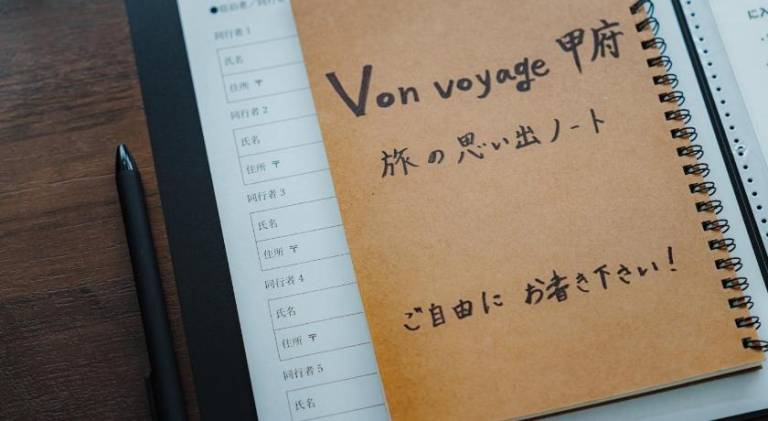 同行者 1
氏名
住所 〒
同行者 2
氏名
住所 〒
同行者 3
氏名
住所 〒
同行者 4
氏名
住所 〒
同行者 5
氏名
Von voyage 甲府
旅の思い出ノート
ご自由に お書き下さい!
に入